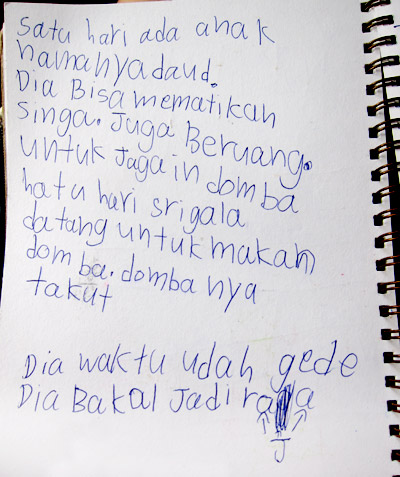 satu hari ada anak
namanya daud.
Dia Bisa mematikan
singa. Juga Beruang.
untuk Jaga in domba
hatu hari srigala
datang untuk makan
dom ba. domba nya
takut
Dia waktu udah gede
Dia Bakal Jadi raja
J